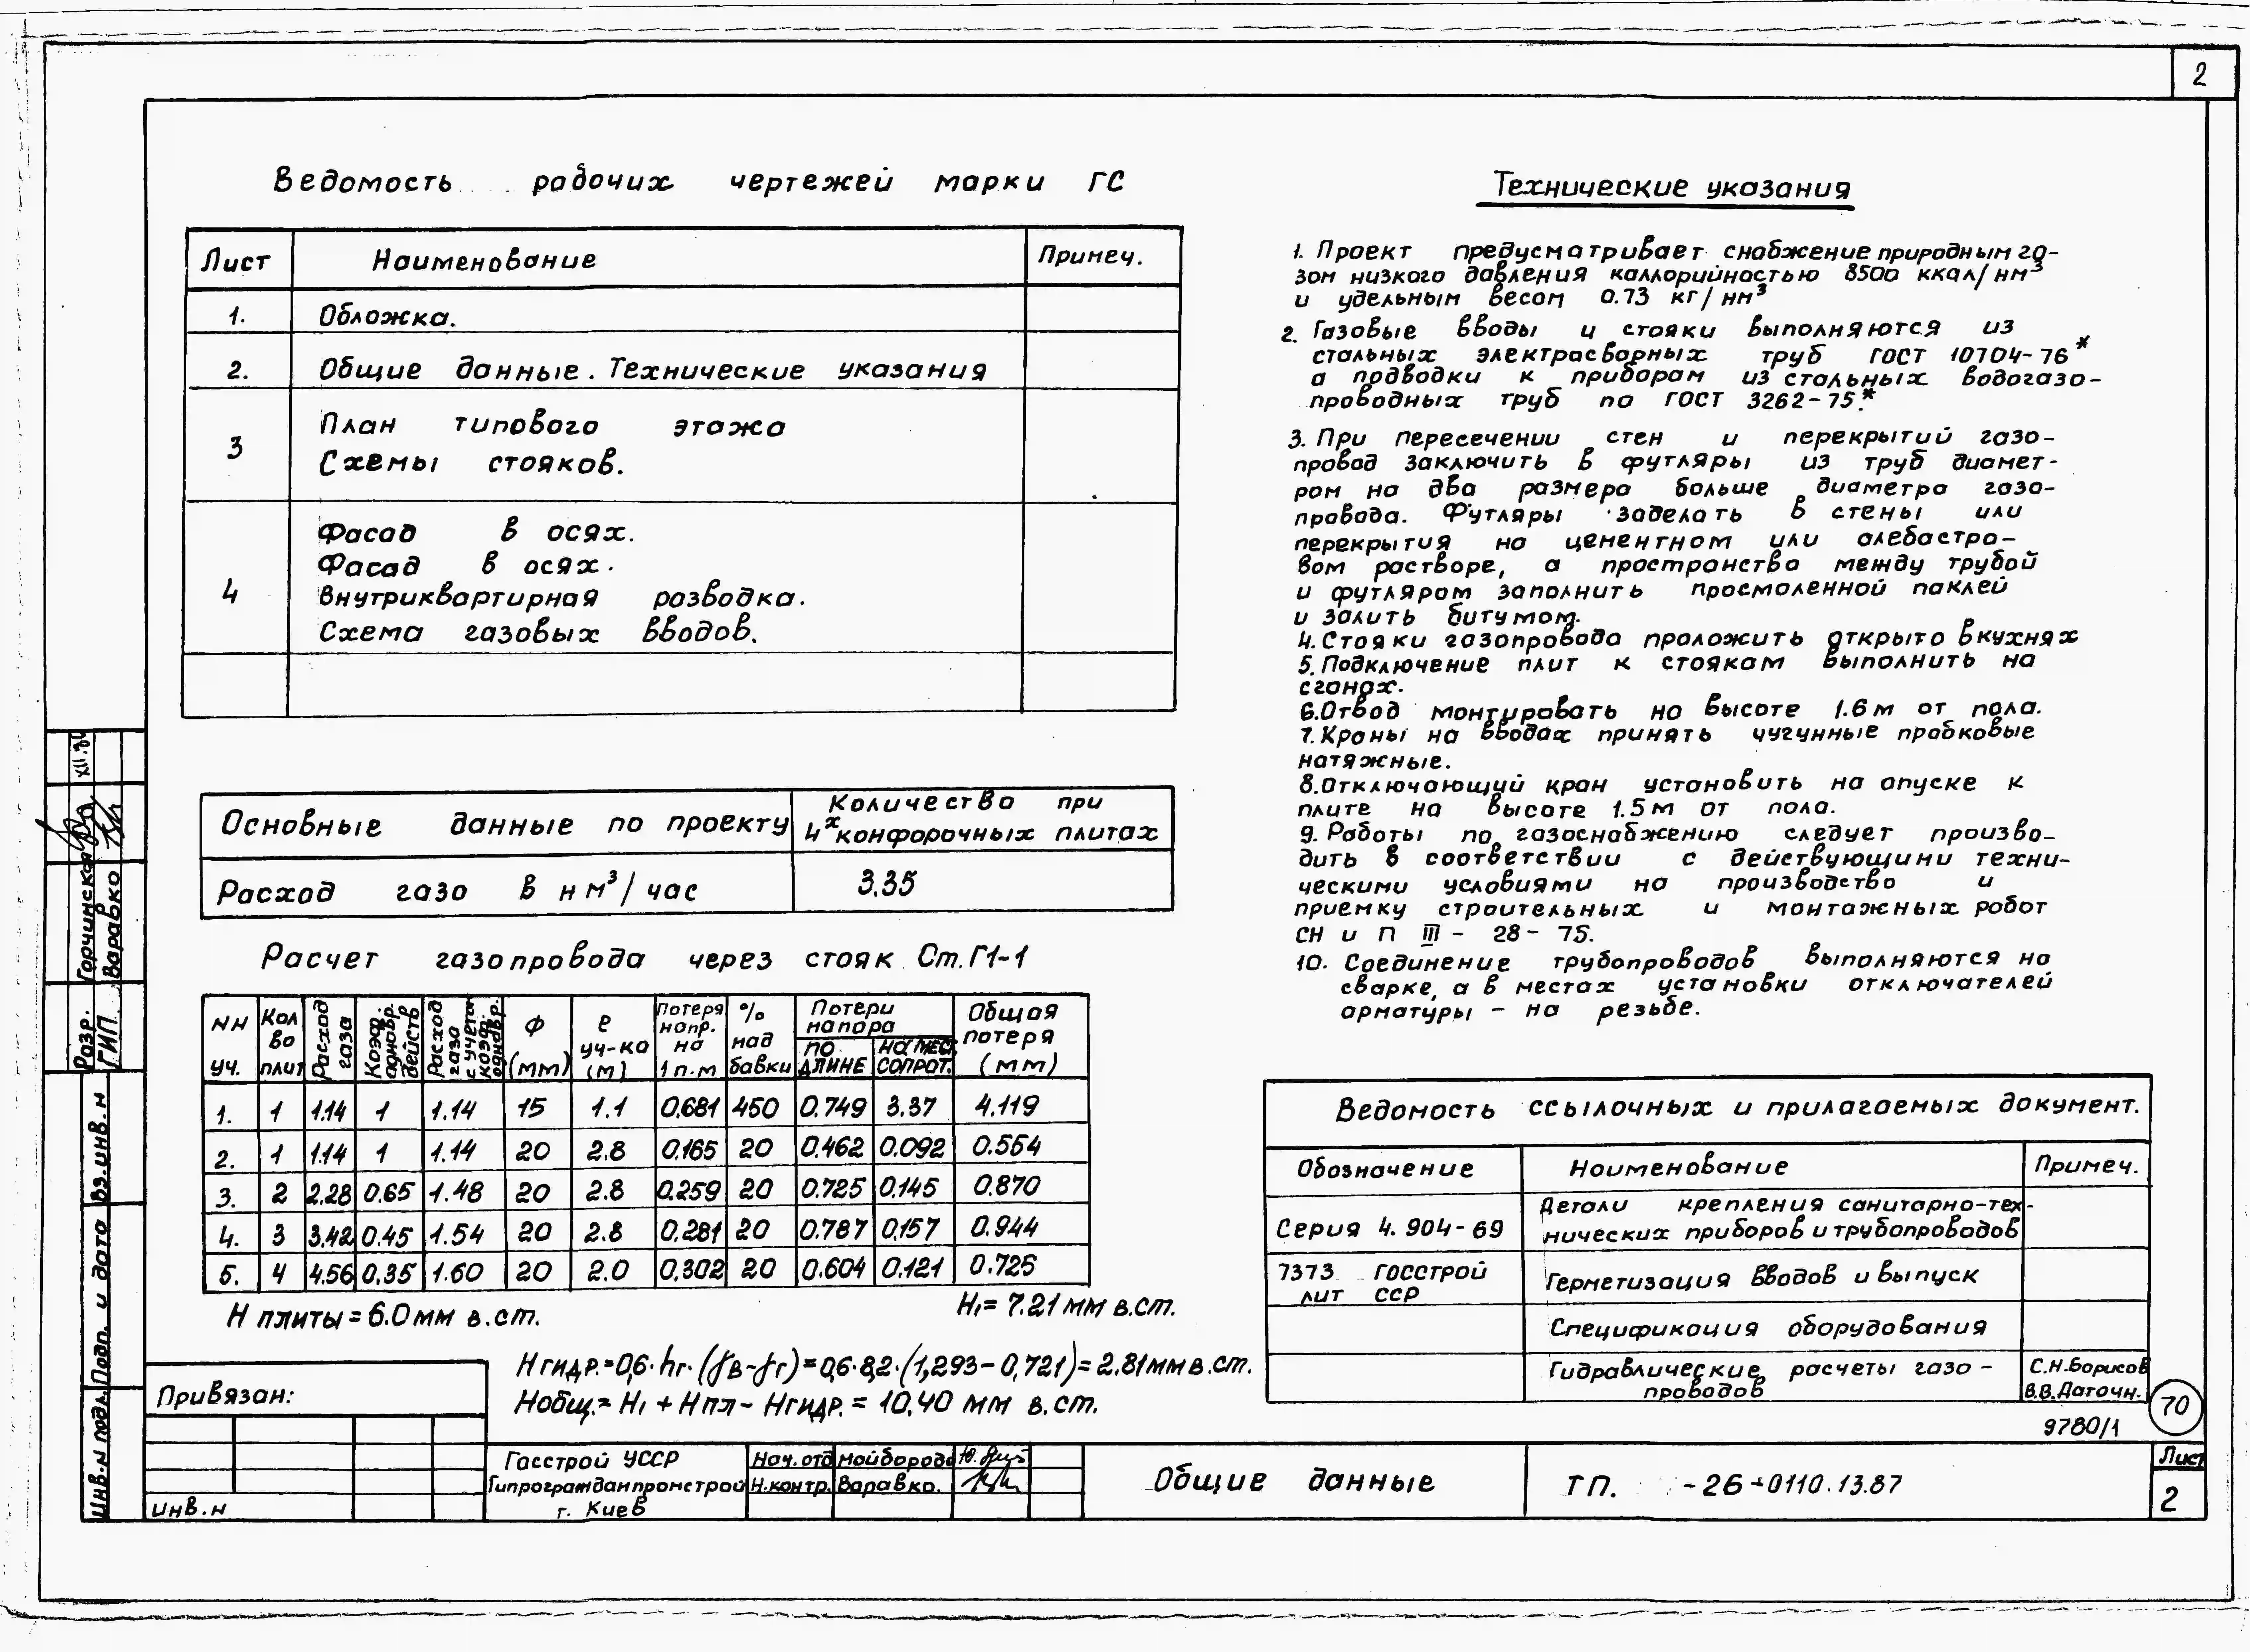 2
Ведомость рабочих чертежей марки ГС
Лист Наименование Примеч.
1. Обложка.
2. Общие данные. Технические указания
3 План типового этажа
Схемы стояков.
4 Фасад в осях.
Фасад в осях.
Внутриквартирная разводка.
Схема газовых вводов.
Основные данные по проекту Количество при
4х конфорочных плитах
Расход газа в нм³/час 3.35
Расчет газопровода через стояк Ст.Г1-1
NN уч. Кол во плит Расход газа Коэф. одновр. действ Расход газа с учетом коэф. однвр. Ф (мм) ℓ уч-ка (м) Потеря напр. на 1 п.м % над бавки Потери напора по длине на мес. сопрот. Общая потеря (мм)
1. 1 1.14 1 1.14 15 1.1 0.681 450 0.749 3.37 4.119
2. 1 1.14 1 1.14 20 2.8 0.165 20 0.462 0.092 0.554
3. 2 2.28 0.65 1.48 20 2.8 0.259 20 0.725 0.145 0.870
4. 3 3.42 0.45 1.54 20 2.8 0.281 20 0.787 0.157 0.944
5. 4 4.56 0.35 1.60 20 2.0 0.302 20 0.604 0.121 0.725
Н плиты = 6.0 мм в.ст. Н₁= 7.21 мм в.ст.
Нгидр.=0,6·hг·(γв-γг)=0,6·8,2·(1,293-0,721)=2.81мм в.ст.
Нобщ.= Н₁ + Нпл - Нгидр. = 10,40 мм в.ст.
Технические указания
1. Проект предусматривает снабжение природным га-
зом низкого давления каллорийностью 8500 ккал/нм³
и удельным весом 0.73 кг/нм³
2. Газовые вводы и стояки выполняются из
стальных электросварных труб ГОСТ 10704-76*
а подводки к приборам из стальных водогазо-
проводных труб по ГОСТ 3262-75.*
3. При пересечении стен и перекрытий газо-
провод заключить в футляры из труб диамет-
ром на два размера больше диаметра газо-
провода. Футляры заделать в стены или
перекрытия на цементном или алебастро-
вом растворе, а пространство между трубой
и футляром заполнить просмоленной паклей
и залить битумом.
4. Стояки газопровода проложить открыто в кухнях
5. Подключение плит к стоякам выполнить на
сгонах.
6. Отвод монтировать на высоте 1.6м от пола.
7. Краны на вводах принять чугунные пробковые
натяжные.
8. Отключающий кран установить на опуске к
плите на высоте 1.5м от пола.
9. Работы по газоснабжению следует произво-
дить в соответствии с действующими техни-
ческими условиями на производство и
приемку строительных и монтажных работ
СН и П III - 28 - 75.
10. Соединение трубопроводов выполняются на
сварке, а в местах установки отключателей
арматуры - на резьбе.
Ведомость ссылочных и прилагаемых документ.
Обозначение Наименование Примеч.
Серия 4.904-69 Детали крепления санитарно-тех-
нических приборов и трубопроводов
7373 Госстрой
лит ССР Герметизация вводов и выпуск
Спецификация оборудования
Гидравлические расчеты газо-
проводов С.Н.Борисов
В.В.Даточн.
70
9780/1
XII.84
Разр. Горчинская
ГИП Варавко
Инв.н подл. Подп. и дата Вз.инв.н
Привязан:
Инв.н
Госстрой УССР
Гипрогражданпромстрой
г. Киев
Нач.отд Майборода
Н.контр. Варавко.
Общие данные
ТП. -26-0110.13.87
Лист
2